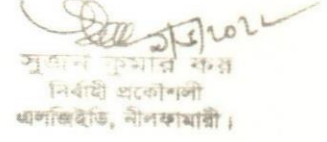 সুজন কুমার কর
নির্বাহী প্রকৌশলী
এলজিইডি, নীলফামারী।